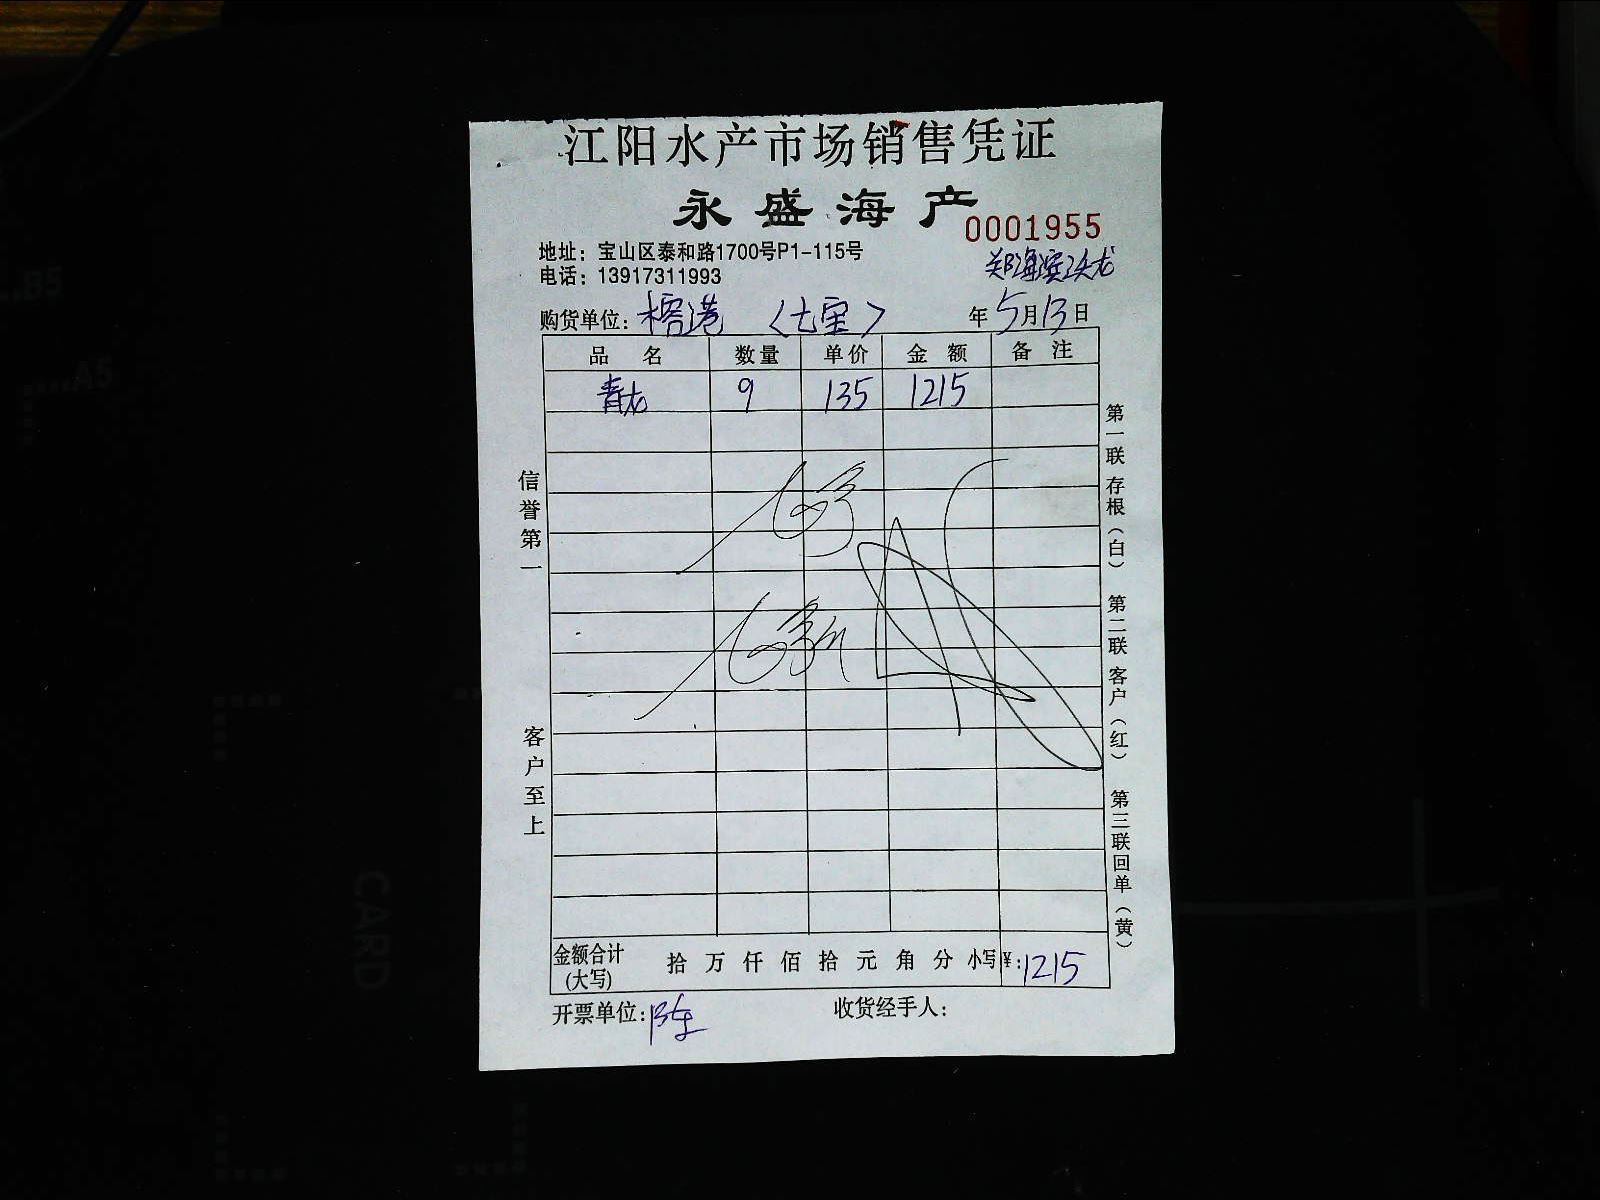 江阳水产市场销售凭证
永盛海产
0001955
地址：宝山区泰和路1700号P1-115号
电话：13917311993
购货单位：榕港 〈七宝〉 年5月13日
品名 数量 单价 金额 备注
青龙 9 135 1215
信誉第一
客户至上
第一联 存根（白） 第二联 客户（红） 第三联 回单（黄）
金额合计(大写) 拾 万 仟 佰 拾 元 角 分 小写¥：1215
开票单位：陈 收货经手人：
B5
A5
CARD